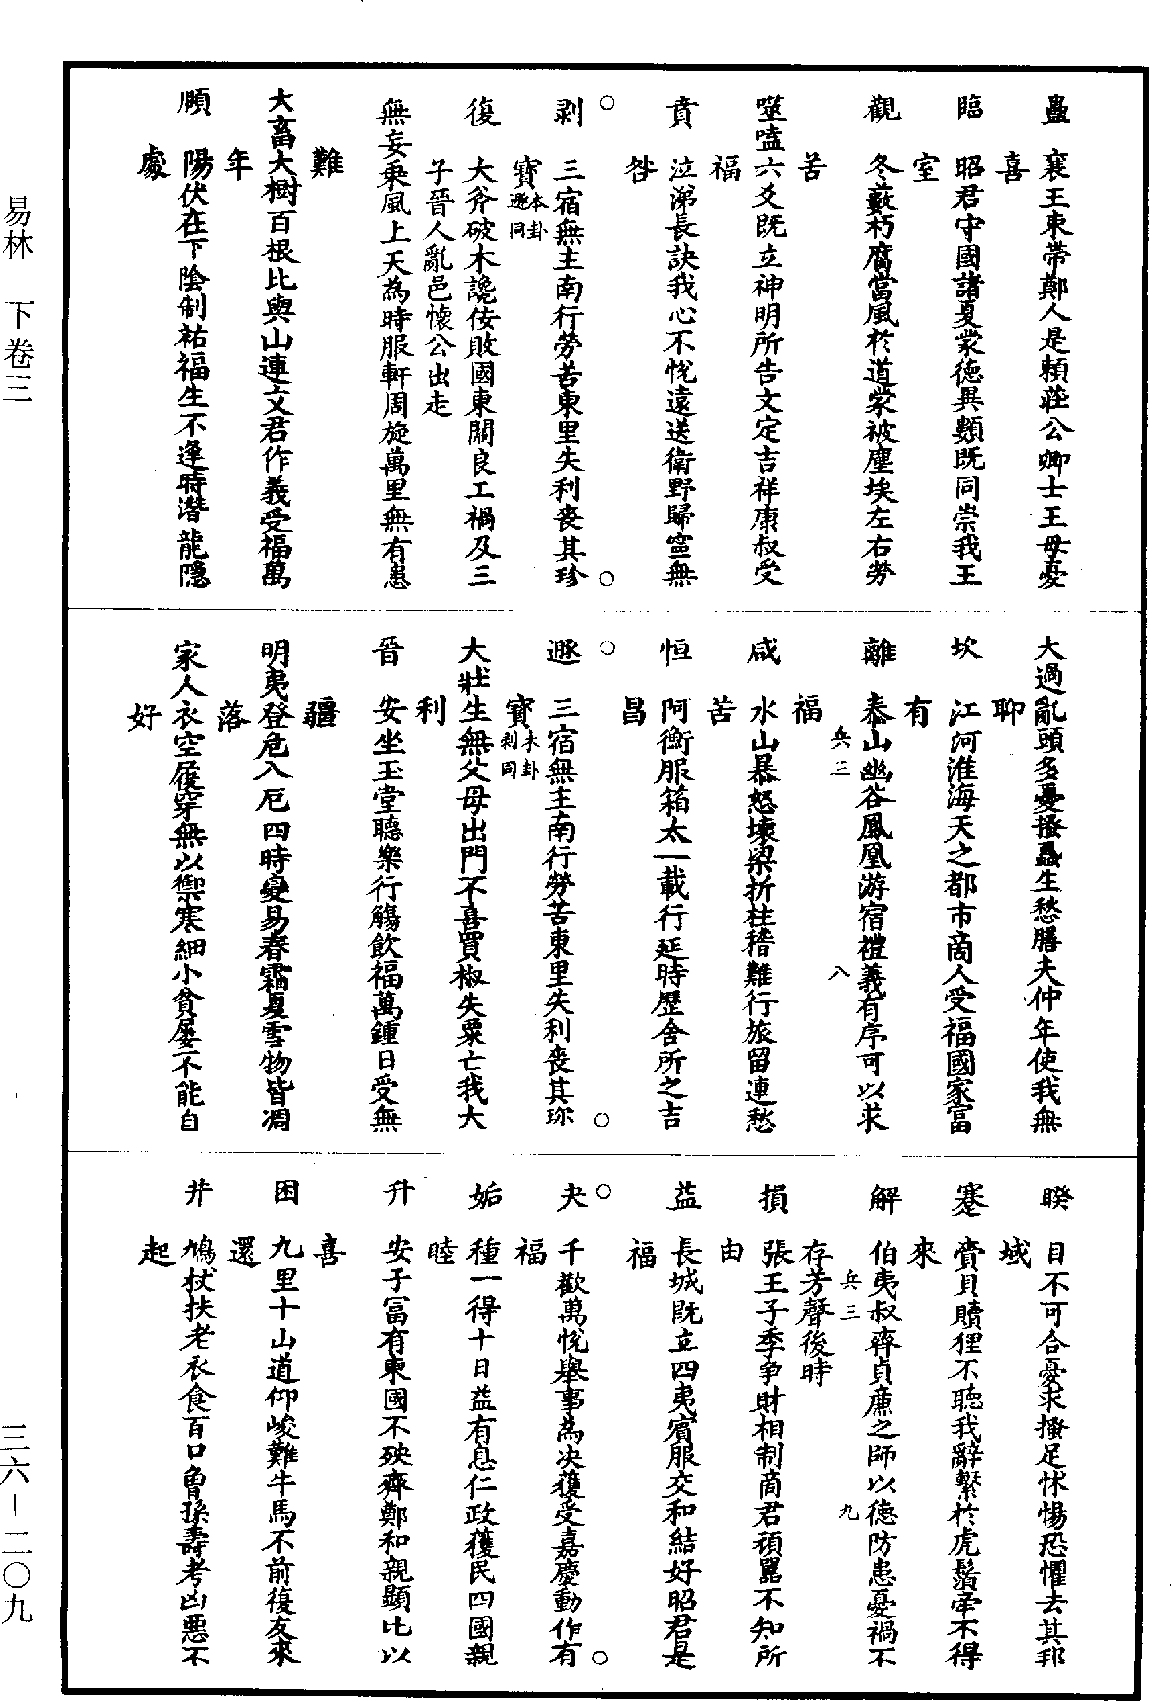 易林　下卷三
三六－二〇九
蠱　襄王束帶鄭人是賴莊公卿士王母憂
喜
臨　昭君守國諸夏蒙德異類既同崇我王
室
觀　冬藪朽腐當風於道蒙被塵埃左右勞
苦
噬嗑六爻既立神明所告文定吉祥康叔受
福
賁　泣涕長訣我心不悅遠送衛野歸寧無
咎
○剥　三宿無主南行勞苦東里失利喪其珍○
寶本卦遯同
復　大斧破木讒佞敗國東關良工禍及三
子晉人亂邑懷公出走
無妄乘風上天為時服軒周旋萬里無有患
難
大畜大樹百根比與山連文君作義受福萬
年
頤　陽伏在下陰制祐福生不逢時潛龍隱
處
大過亂頭多憂搔蝨生愁膳夫仲年使我無
聊
坎　江河淮海天之都市商人受福國家富
有
離　泰山幽谷鳳凰游宿禮義有序可以求
福
兵三　八
咸　水山暴怒壞梁折柱稽難行旅留連愁
苦
恒　阿衡服箱太一載行延時歷舍所之吉
昌
○遯　三宿無主南行勞苦東里失利喪其珎○
寶本卦剥同
大壯生無父母出門不喜買椒失粟亡我大
利
晉　安坐玉堂聽樂行觴飲福萬鍾日受無
疆
明夷登危入厄四時變易春霜夏雪物皆凋
落
家人衣空履穿無以禦寒細小貧屢不能自
好
睽　目不可合憂求搔足怵惕恐懼去其邦
域
蹇　賫貝贖狸不聽我辭繫於虎鬚牽不得
來
解　伯夷叔齊貞廉之師以德防患憂禍不
兵三　九
存芳聲後時
損　張王子季爭財相制商君頑嚚不知所
由
益　長城既立四夷賓服交和結好昭君是
福
○夬　千歡萬悅舉事為決獲受嘉慶動作有○
福
姤　種一得十日益有息仁政獲民四國親
睦
升　安子富有東國不殃齊鄭和親顯比以
喜
困　九里十山道仰峻難牛馬不前復友來
還
井　鳩杖扶老衣食百口魯孫壽考凶惡不
起